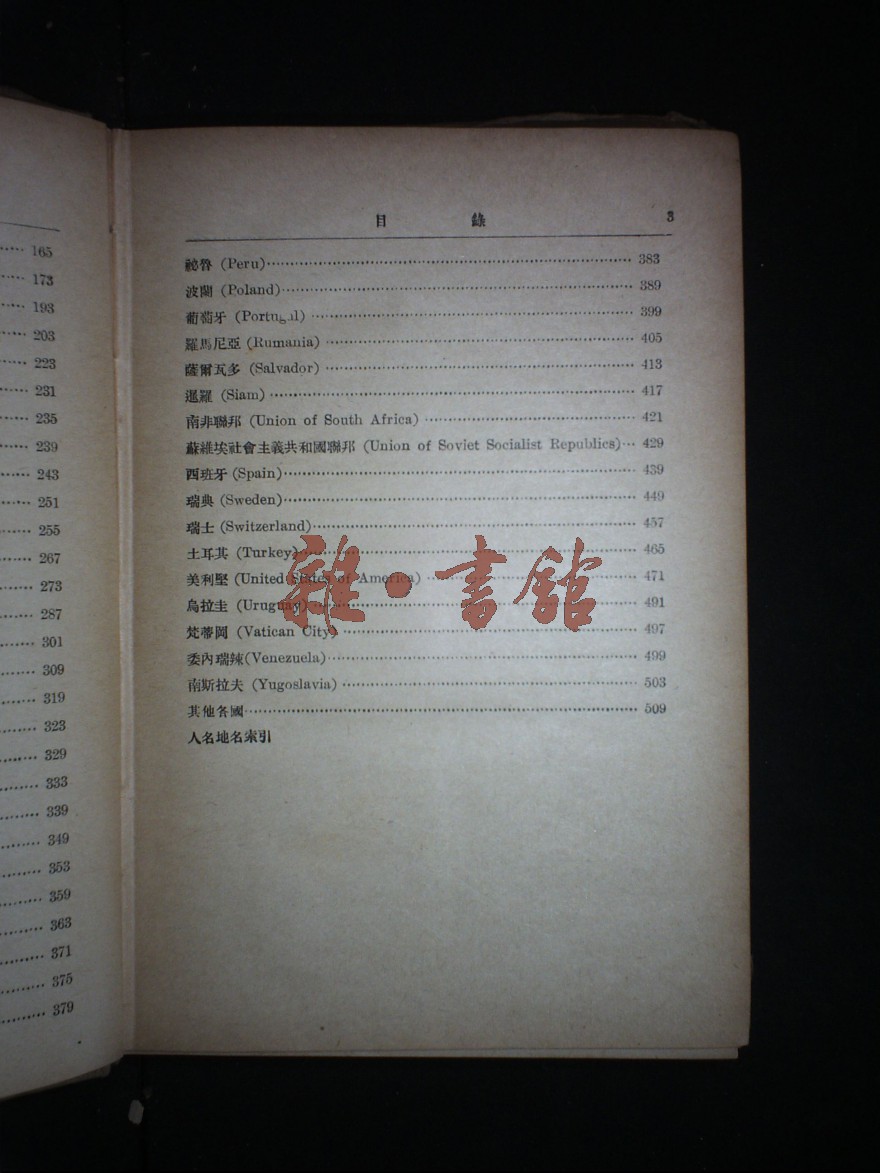 165
173
193
203
223
231
235
239
243
251
255
267
273
287
301
309
319
323
329
333
339
349
353
359
363
371
375
379
目 錄 3
祕魯 (Peru) 383
波蘭 (Poland) 389
葡萄牙 (Portugal) 399
羅馬尼亞 (Rumania) 405
薩爾瓦多 (Salvador) 413
暹羅 (Siam) 417
南非聯邦 (Union of South Africa) 421
蘇維埃社會主義共和國聯邦 (Union of Soviet Socialist Republics) 429
西班牙 (Spain) 439
瑞典 (Sweden) 449
瑞士 (Switzerland) 457
土耳其 (Turkey) 465
美利堅 (United States of America) 471
烏拉圭 (Uruguay) 491
梵蒂岡 (Vatican City) 497
委內瑞辣 (Venezuela) 499
南斯拉夫 (Yugoslavia) 503
其他各國 509
人名地名索引
雜·書館